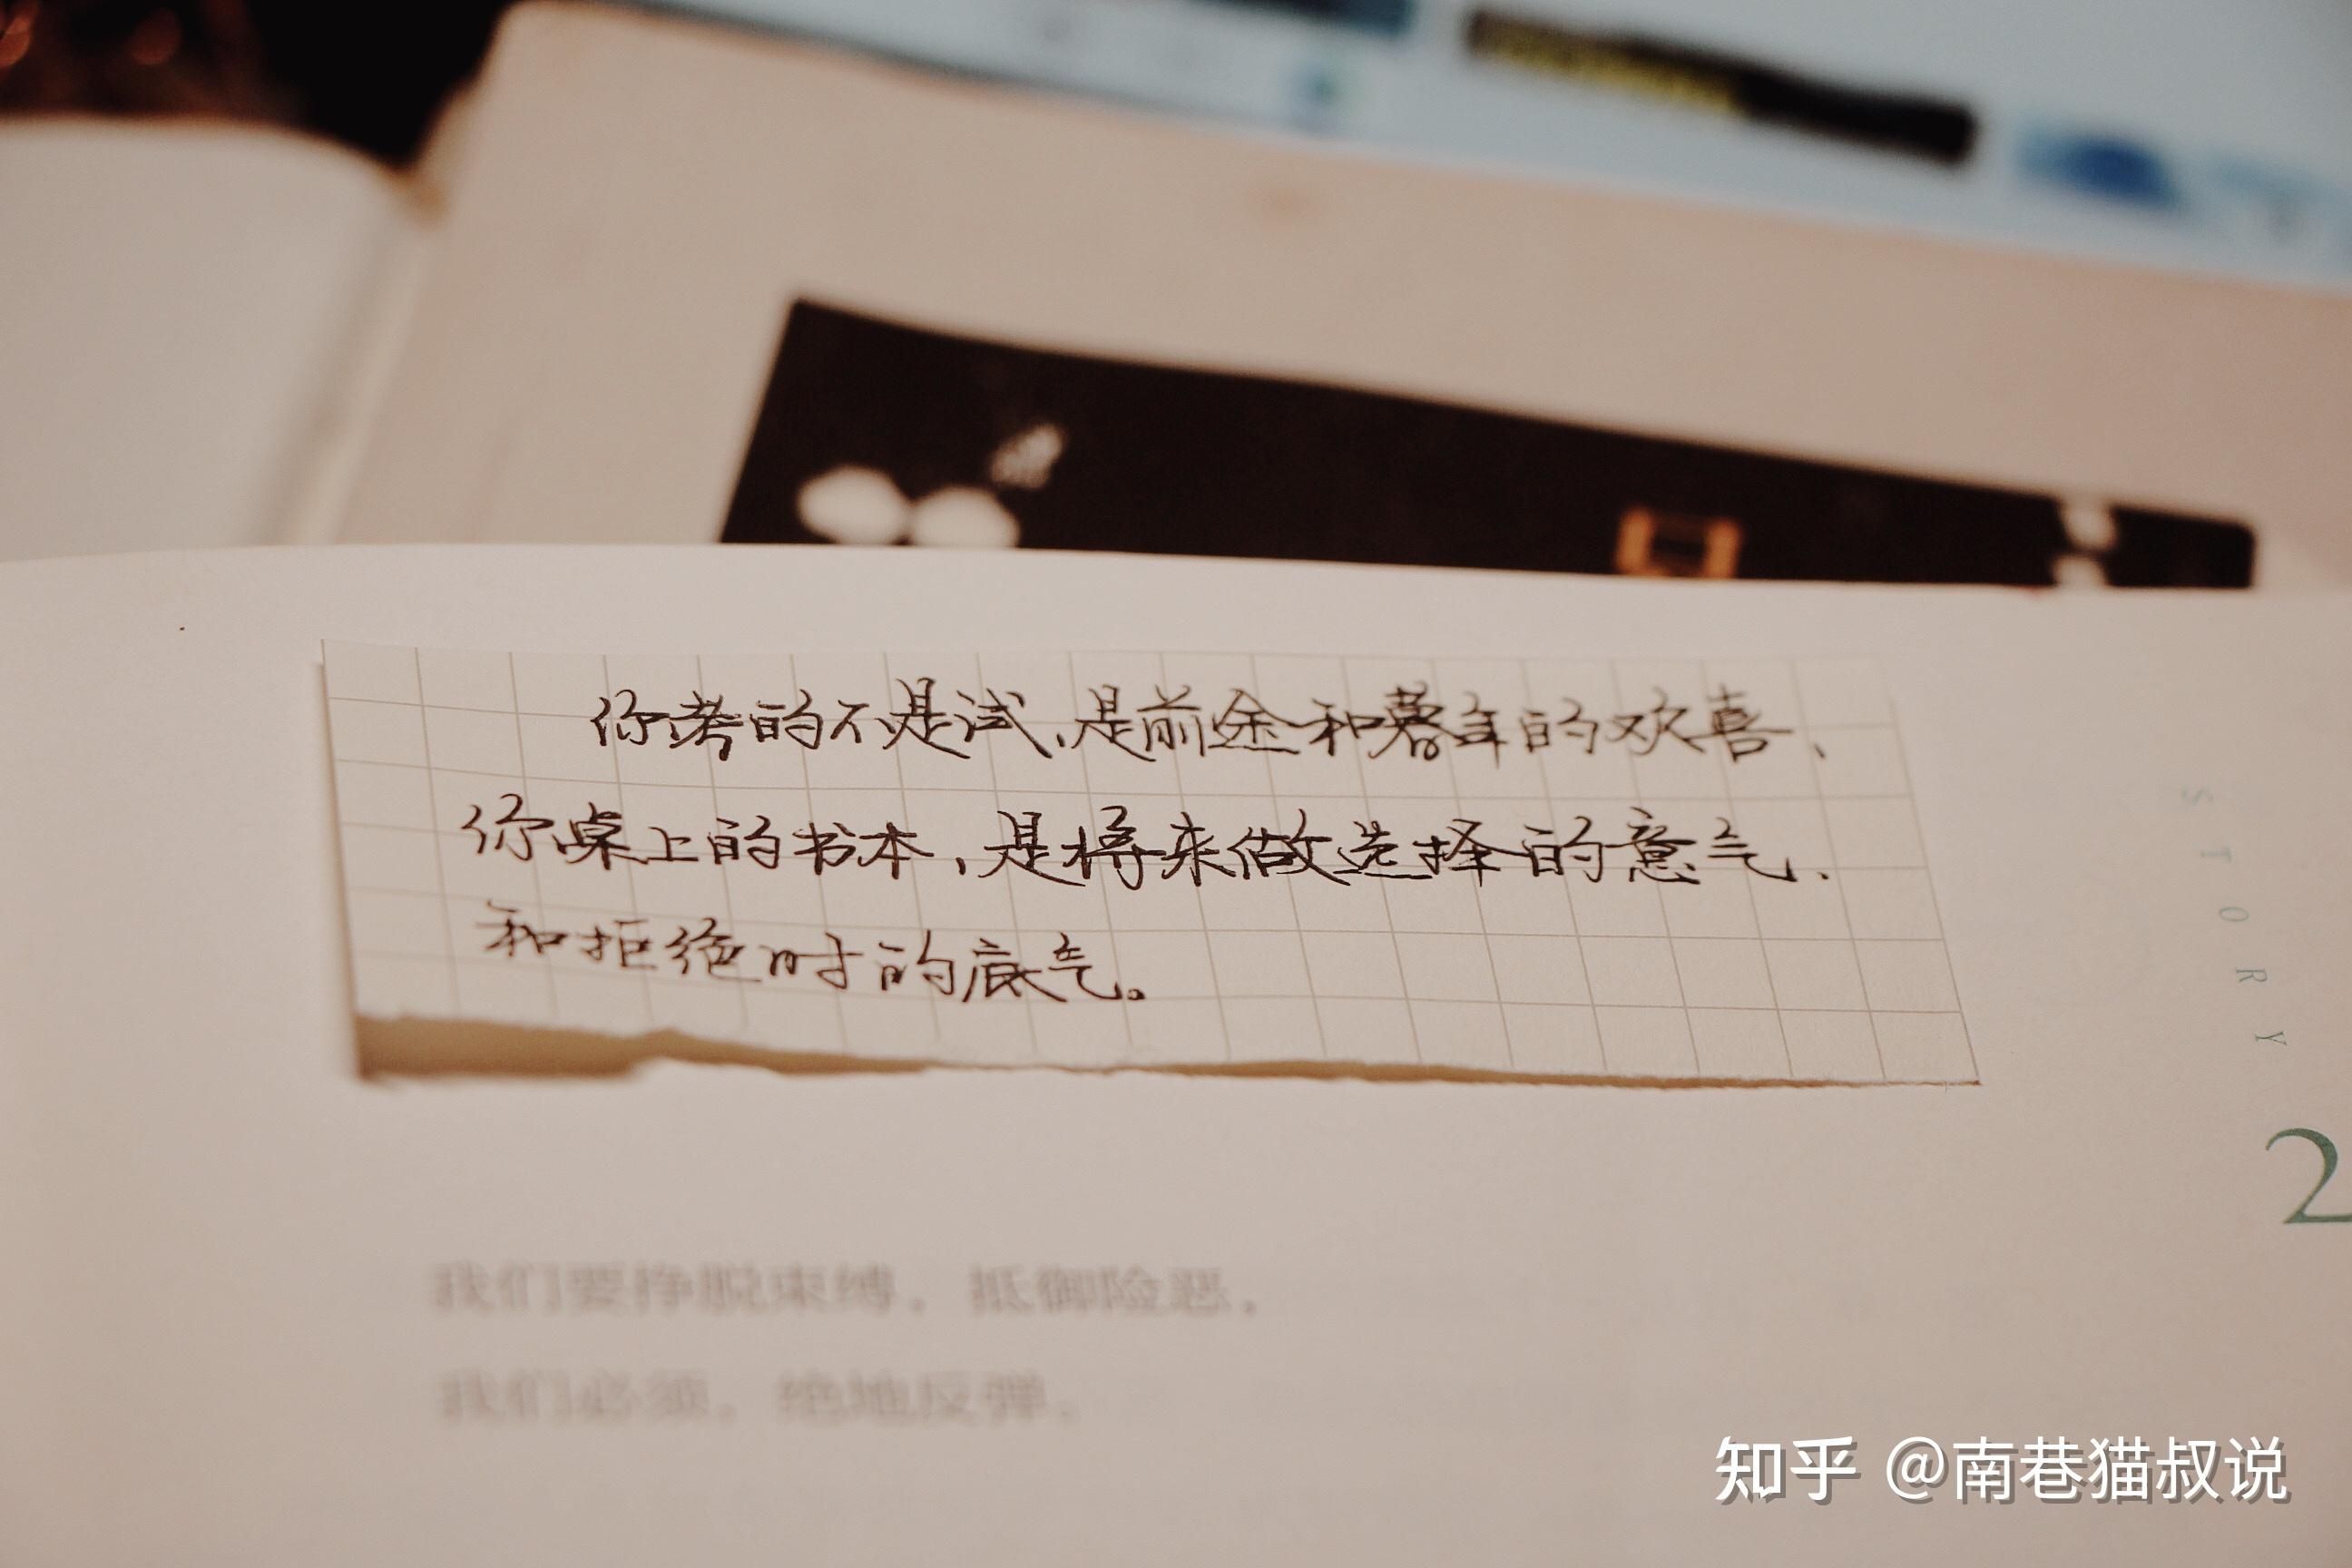 你考的不是试,是前途和暮年的欢喜、
你桌上的书本,是将来做选择的意气、
和拒绝时的底气。
STORY
2
我们要挣脱束缚,抵御险恶,
我们必须,绝地反弹。
知乎 @南巷猫叔说